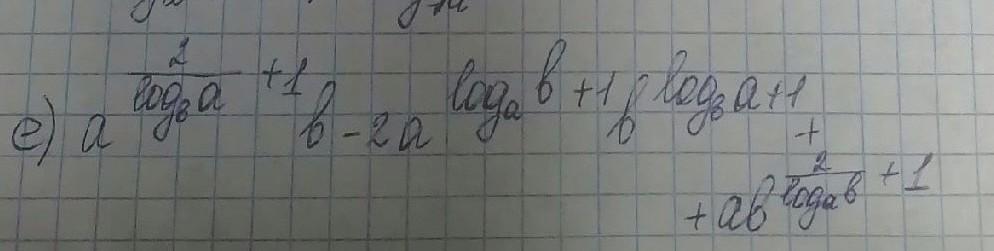 е) a^{\frac{2}{\log_b a}+1} b - 2a^{\log_a b+1} b^{\log_b a+1} +
+ ab^{\frac{2}{\log_a b}+1}